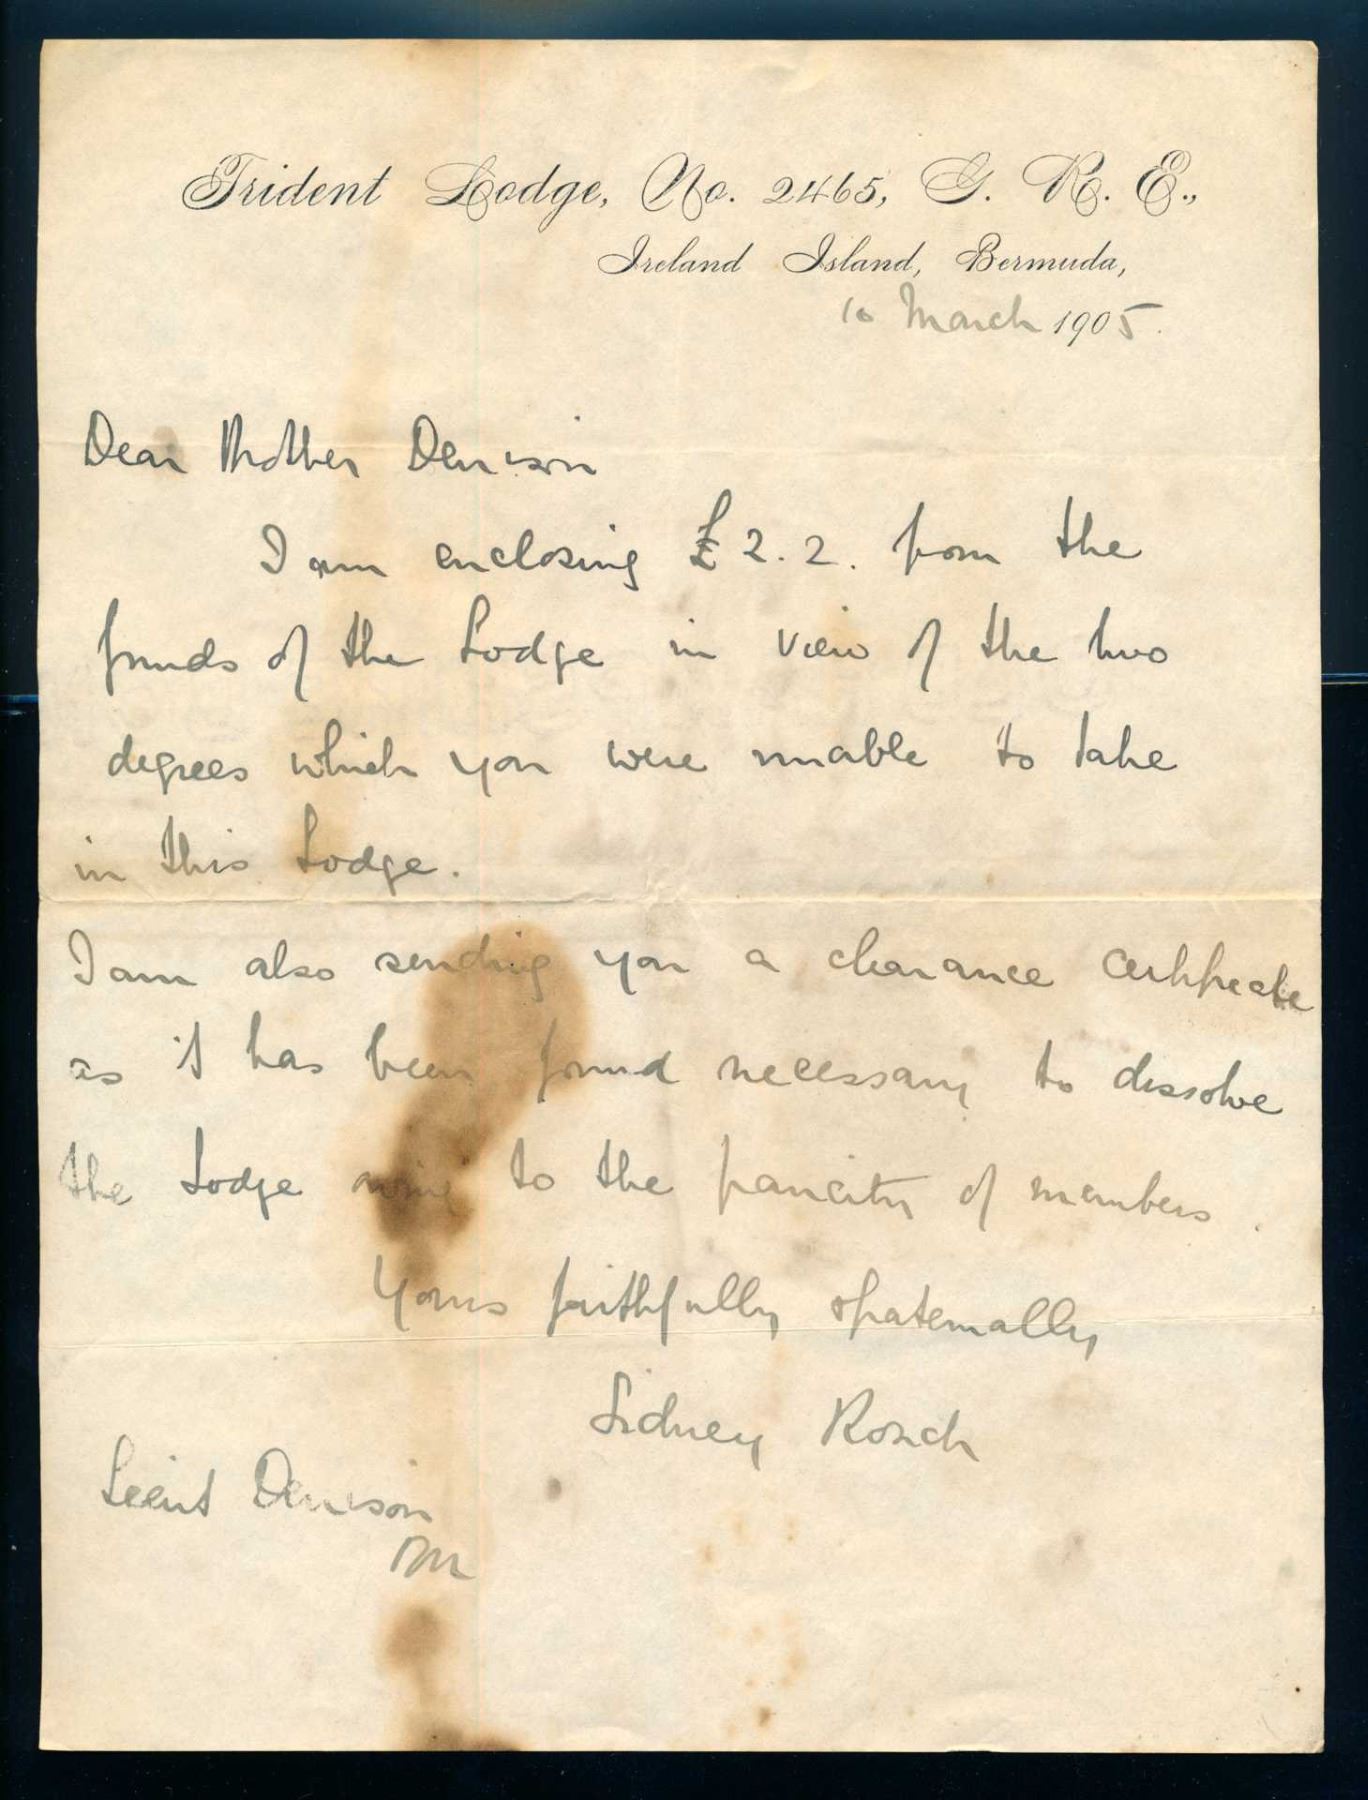 Trident Lodge, No. 2465, G. R. E.,
Ireland Island, Bermuda,
10 March 1905.
Dear Brother Denison
I am enclosing £2.2. from the
funds of the Lodge in view of the two
degrees which you were unable to take
in this Lodge.
I am also sending you a clearance certificate
as it has been found necessary to dissolve
the Lodge owing to the paucity of members.
Yours faithfully & fraternally
Sidney
Lieut Denison
RN